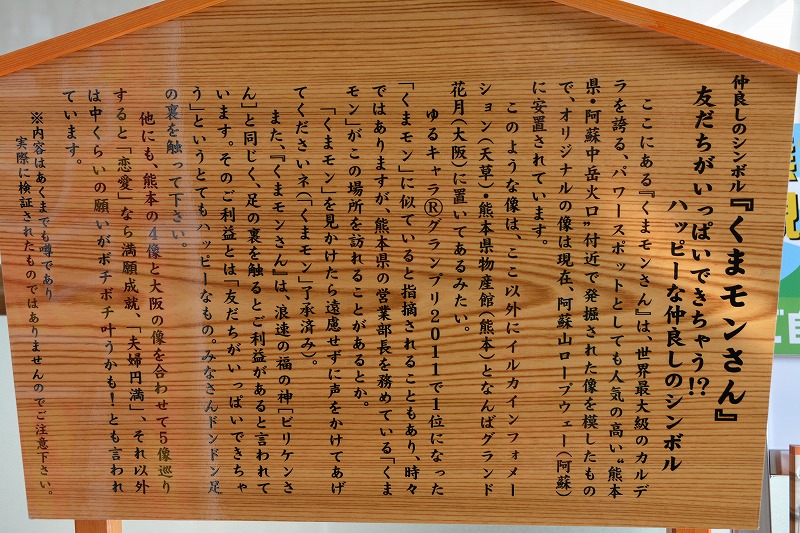 仲良しのシンボル『くまモンさん』
友だちがいっぱいできちゃう!?
ハッピーな仲良しのシンボル
ここにある『くまモンさん』は、世界最大級のカルデ
ラを誇る、パワースポットとしても人気の高い“熊本
県・阿蘇中岳火口”付近で発掘された像を模したもの
で、オリジナルの像は現在、阿蘇山ロープウェー(阿蘇)
に安置されています。
このような像は、ここ以外にイルカインフォメー
ション(天草)・熊本県物産館(熊本)となんばグランド
花月(大阪)に置いてあるみたい。
ゆるキャラ®グランプリ2011で1位になった
「くまモン」に似ていると指摘されることもあり、時々
ではありますが、熊本県の営業部長を務めている「くま
モン」がこの場所を訪れることがあるとか。
「くまモン」を見かけたら遠慮せずに声をかけてあげ
てくださいネ(「くまモン」了承済み)。
また、『くまモンさん』は、浪速の福の神[ビリケンさ
ん]と同じく、足の裏を触るとご利益があると言われて
います。そのご利益とは「友だちがいっぱいできちゃ
う」というとてもハッピーなもの。みなさんドンドン足
の裏を触って下さい。
他にも、熊本の4像と大阪の像を合わせて5像巡り
すると「恋愛」なら満願成就、「夫婦円満」、それ以外
は中くらいの願いがボチボチ叶うかも!とも言われ
ています。
※内容はあくまでも噂であり
実際に検証されたものではありませんのでご注意下さい。